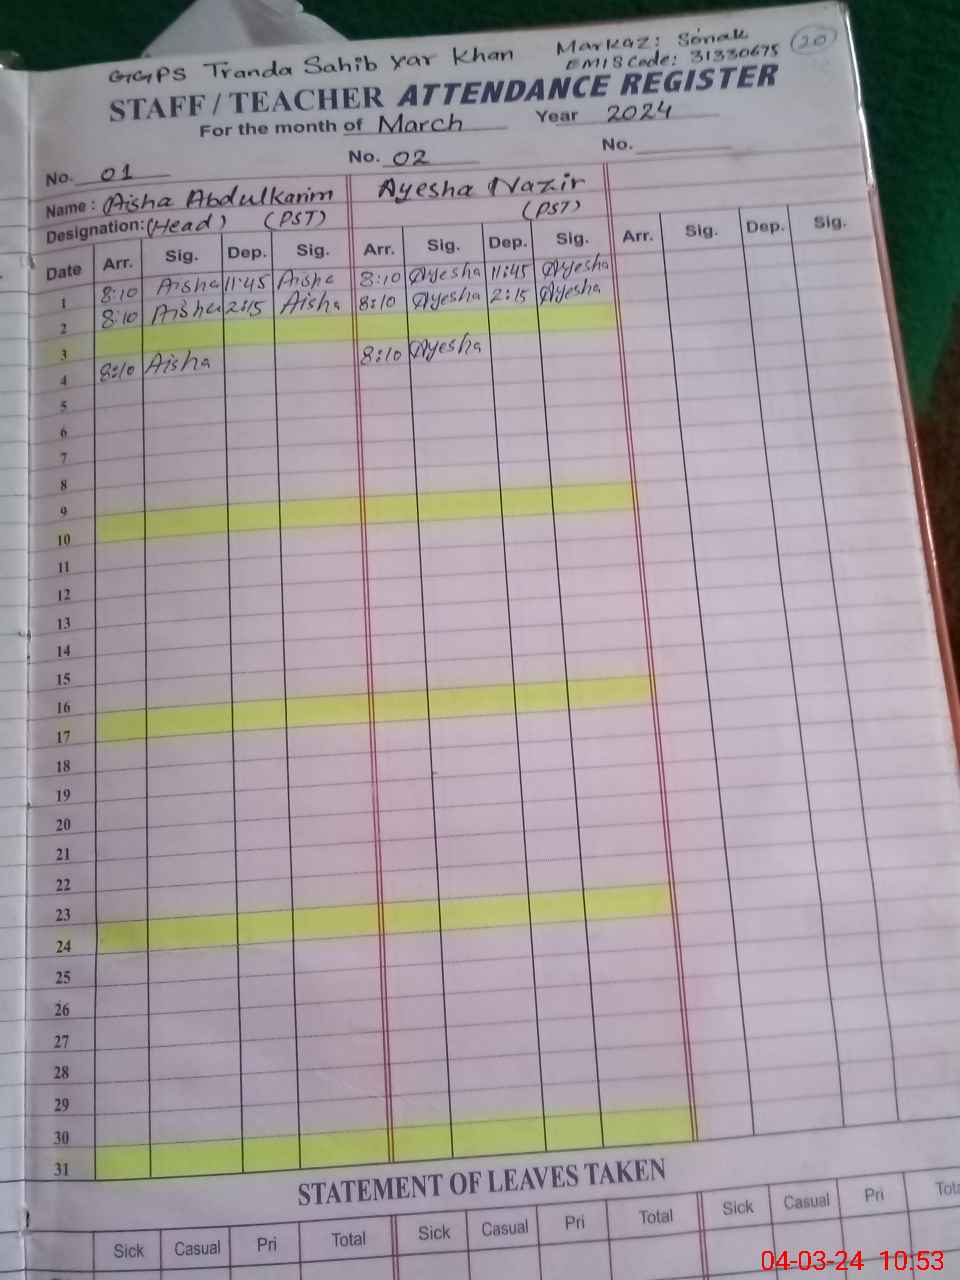 GGPS Tranda Sahib yar Khan Markaz: Sonak 20
EMIS Code: 31330675
STAFF / TEACHER ATTENDANCE REGISTER
For the month of March Year 2024
No. 01 No. 02 No.
Name: Aisha Abdulkarim Ayesha Nazir
Designation: (Head) (PST) (PST)
Date Arr. Sig. Dep. Sig. Arr. Sig. Dep. Sig. Arr. Sig. Dep. Sig.
1 8:10 Aisha 11:45 Aisha 8:10 Ayesha 11:45 Ayesha
2 8:10 Aisha 2:15 Aisha 8:10 Ayesha 2:15 Ayesha
3
4 8:10 Aisha 8:10 Ayesha
5
6
7
8
9
10
11
12
13
14
15
16
17
18
19
20
21
22
23
24
25
26
27
28
29
30
31
STATEMENT OF LEAVES TAKEN
Sick Casual Pri Total Sick Casual Pri Total Sick Casual Pri Tota
04-03-24 10:53